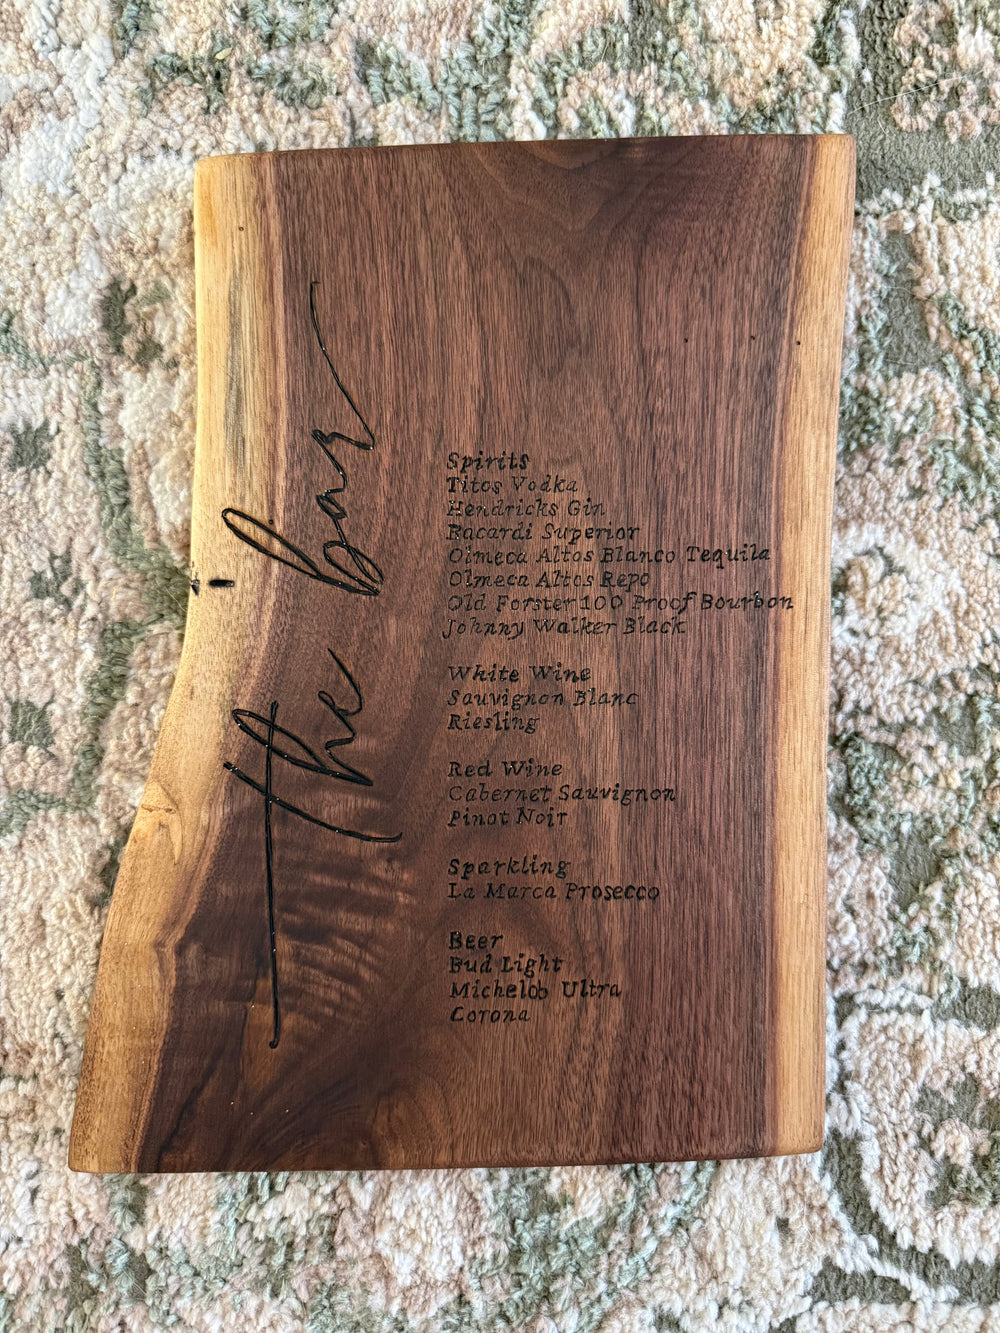 the bar
Spirits
Titos Vodka
Hendricks Gin
Bacardi Superior
Olmeca Altos Blanco Tequila
Olmeca Altos Repo
Old Forster 100 Proof Bourbon
Johnny Walker Black
White Wine
Sauvignon Blanc
Riesling
Red Wine
Cabernet Sauvignon
Pinot Noir
Sparkling
La Marca Prosecco
Beer
Bud Light
Michelob Ultra
Corona